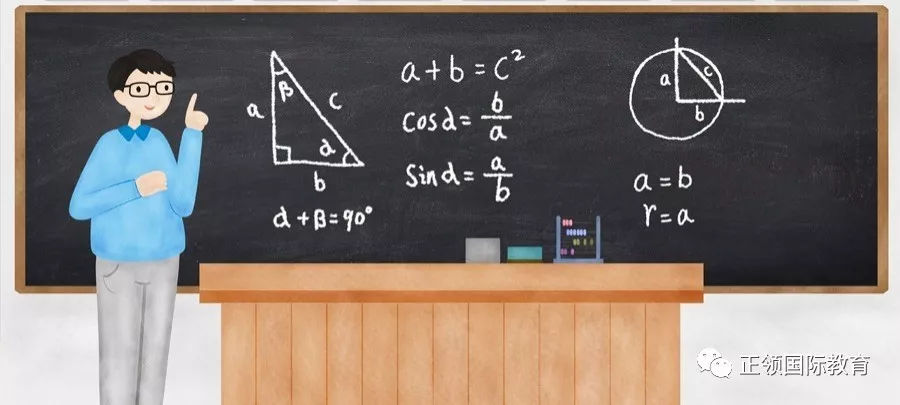 a
β
c
α
b
α+β=90°
a+b=C²
cosα=b/a
sinα=a/b
a
c
b
a=b
r=a
正领国际教育